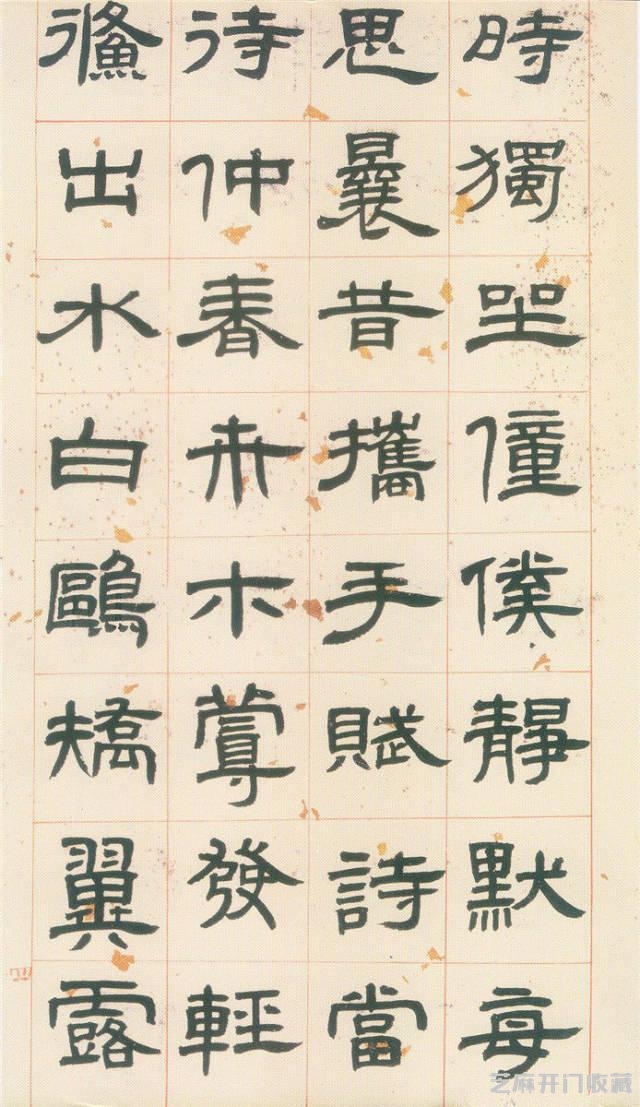 時獨坐僮僕靜默每
思曩昔攜手賦詩當
待仲春卉木蔓發輕
鯈出水白鷗矯翼露
芝麻开门收藏